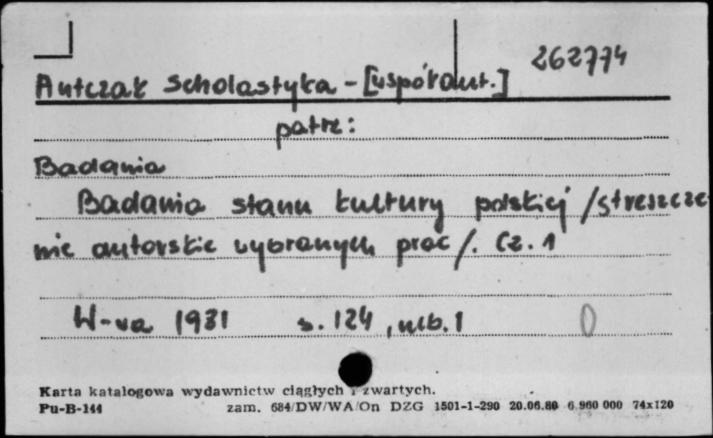 262774
Antczak Scholastyka - [współaut.]
patrz:
Badania
Badania stanu kultury polskiej /streszcze-
nie autorskie wybranych prac/. Cz. 1
W-wa 1981 s. 124, nlb. 1
Karta katalogowa wydawnictw ciągłych i zwartych.
Pu-B-144 zam. 684/DW/WA/On DZG 1501-1-290 20.06.80 6.960 000 74x120